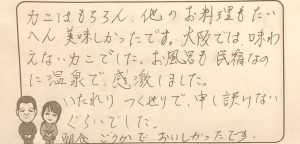 カニはもちろん、他のお料理もたい
へん美味しかったです。大阪では味わ
えないカニでした。お風呂も民宿なの
に温泉で、感激しました。
いたれりつくせりで、申し訳けない
ぐらいでした。
朝食ごうかでおいしかったです。